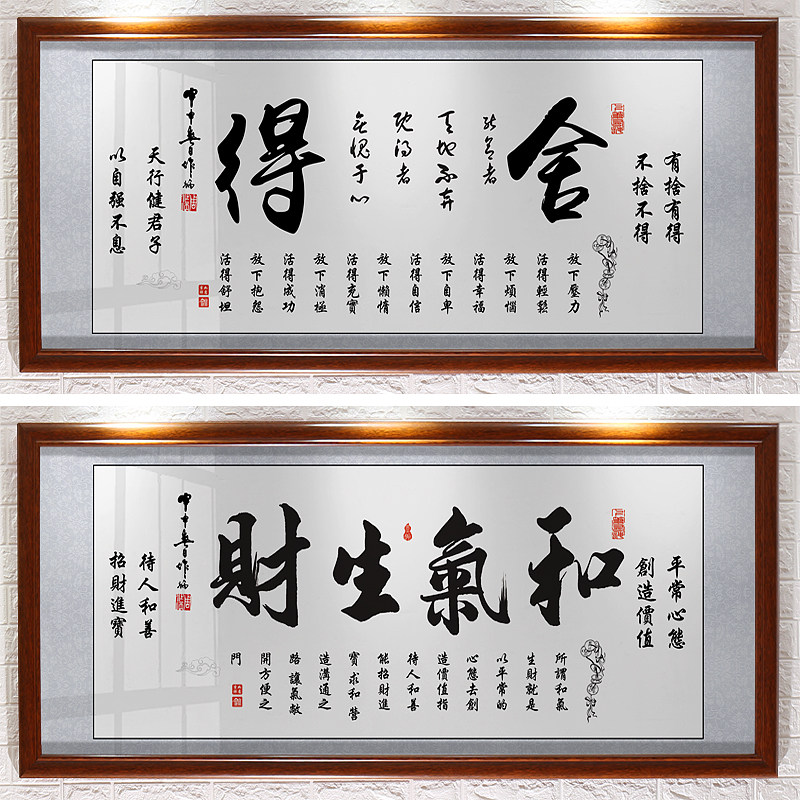 有捨有得
不捨不得
舍
能舍者
天地不弃
既得者
無愧于心
得
放下壓力
活得輕鬆
放下煩惱
活得幸福
放下自卑
活得自信
放下懶惰
活得充實
放下消極
活得成功
放下抱怨
活得舒坦
甲申春日作
天行健君子
以自强不息
平常心態
創造價值
和氣生財
所謂和氣
生財就是
以平常的
心態去創
造價值指
待人和善
能招財進
寶求和營
造溝通之
路讓氣敞
開方便之
門
甲申春日作
待人和善
招財進寶